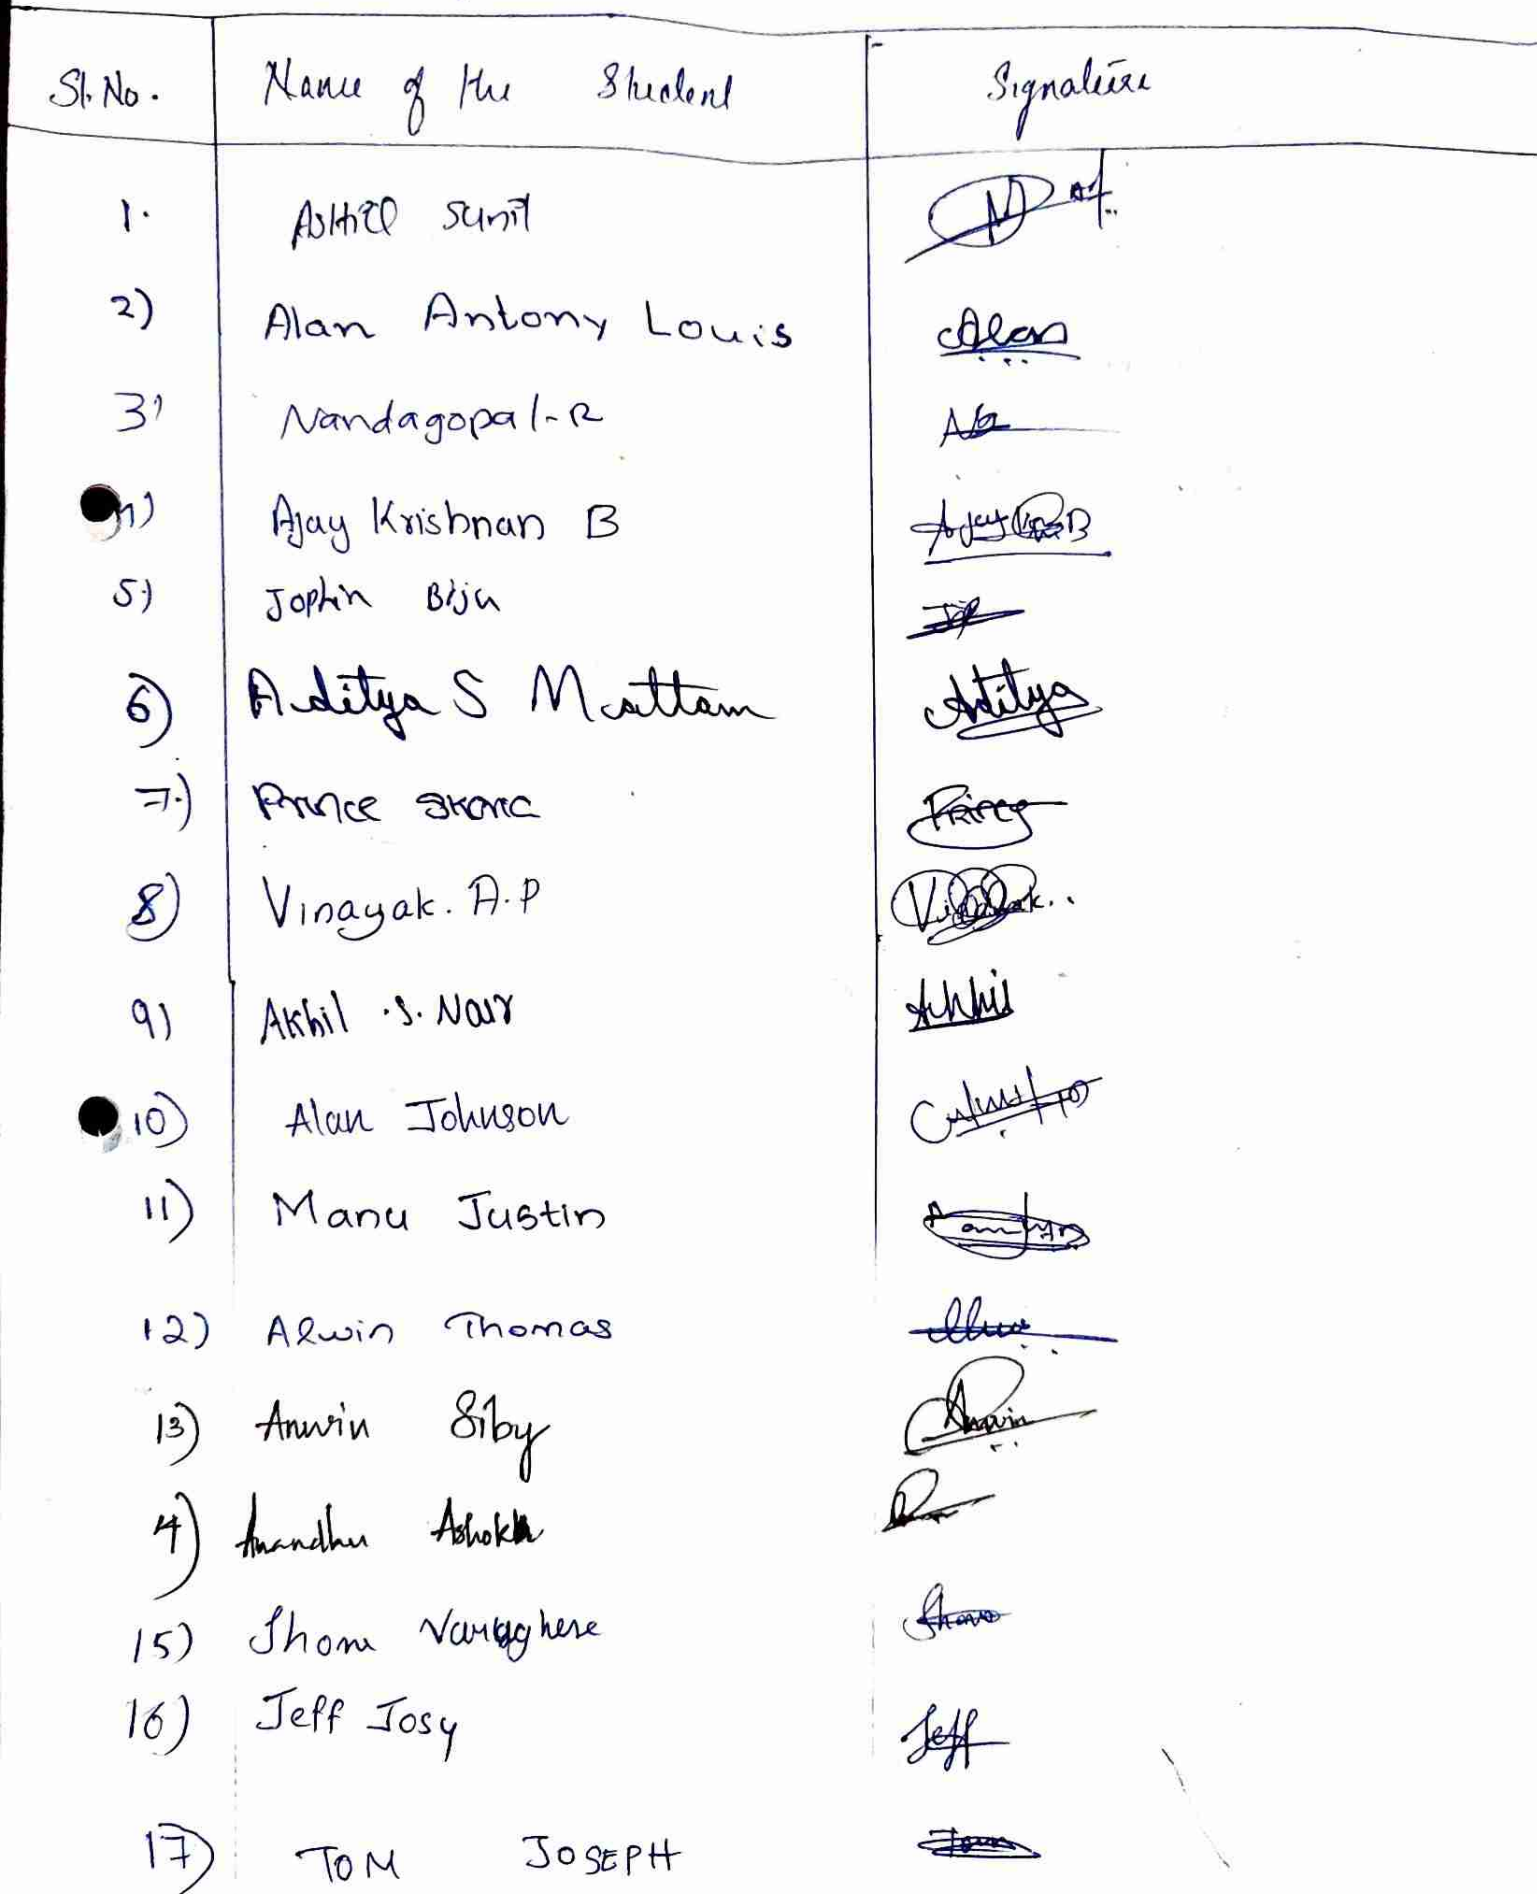 Sl. No. Name of the Student Signature
1. Ashill Sunil
2) Alan Antony Louis Alan
3) Nandagopal-R
4) Ajay Krishnan B Ajay B
5) Jophin Biju
6) Aditya S Mattam Aditya
7.) Prince Prince
8) Vinayak. A.P Vinayak..
9) Akhil .S. Nair Akhil
10) Alan Johnson
11) Manu Justin
12) Alwin Thomas
13) Anwin Siby Anwin
14) Anandhu Ashok
15) Shone Varughese Shone
16) Jeff Josy Jeff
17) TOM JOSEPH Tom